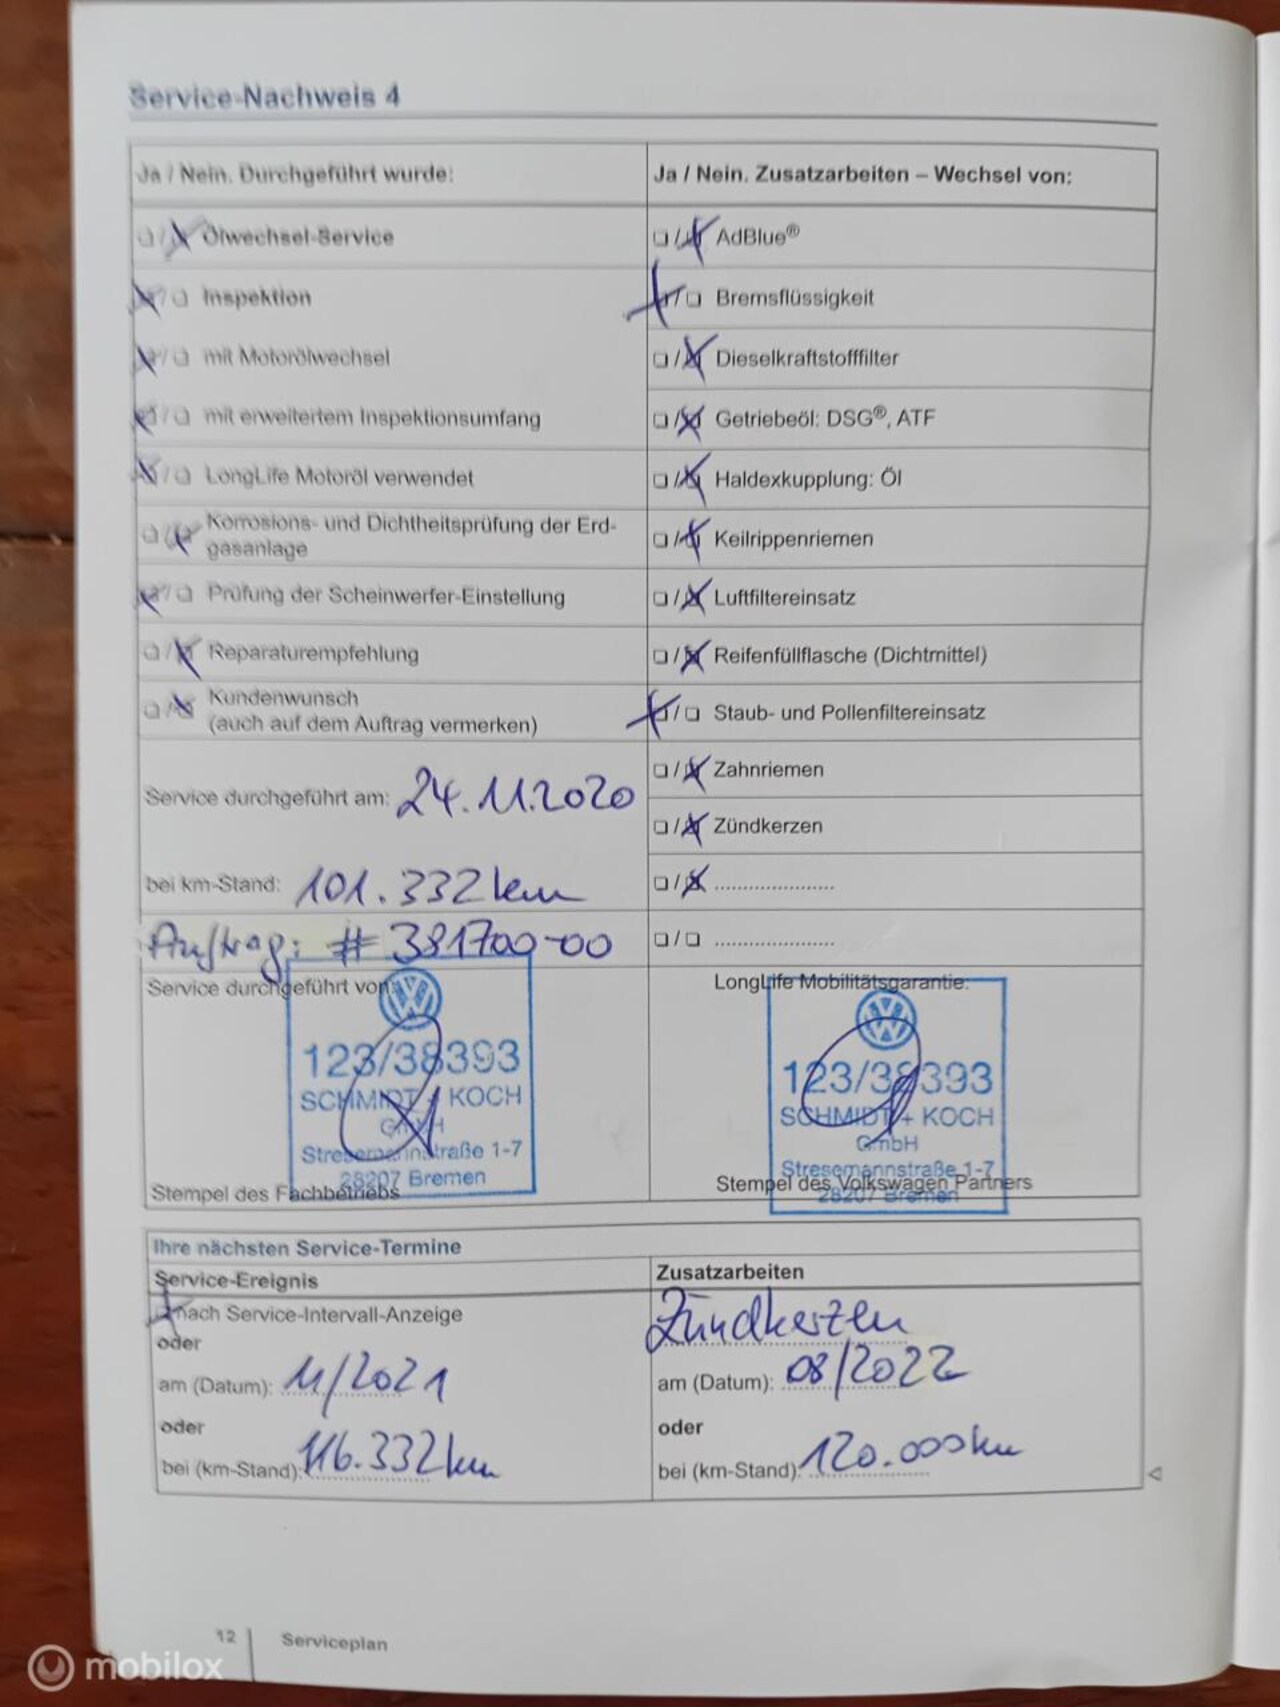 Service-Nachweis 4
Ja / Nein. Durchgeführt wurde:
Ölwechsel-Service
Inspektion
mit Motorölwechsel
mit erweitertem Inspektionsumfang
LongLife Motoröl verwendet
Korrosions- und Dichtheitsprüfung der Erd-
gasanlage
Prüfung der Scheinwerfer-Einstellung
Reparaturempfehlung
Kundenwunsch
(auch auf dem Auftrag vermerken)
Service durchgeführt am: 24.11.2020
bei km-Stand: 101.332 km
Auftrag: # 381700-00
Ja / Nein. Zusatzarbeiten – Wechsel von:
AdBlue®
Bremsflüssigkeit
Dieselkraftstofffilter
Getriebeöl: DSG®, ATF
Haldexkupplung: Öl
Keilrippenriemen
Luftfiltereinsatz
Reifenfüllflasche (Dichtmittel)
Staub- und Pollenfiltereinsatz
Zahnriemen
Zündkerzen
Service durchgeführt von:
123/38393
SCHMIDT + KOCH
GmbH
Stresemannstraße 1-7
28207 Bremen
Stempel des Fachbetriebs
LongLife Mobilitätsgarantie:
123/38393
SCHMIDT + KOCH
GmbH
Stresemannstraße 1-7
28207 Bremen
Stempel des Volkswagen Partners
Ihre nächsten Service-Termine
Service-Ereignis
nach Service-Intervall-Anzeige
oder
am (Datum): 11/2021
oder
bei (km-Stand): 116.332 km
Zusatzarbeiten
Zündkerzen
am (Datum): 08/2022
oder
bei (km-Stand): 120.000 km
12 Serviceplan
mobilox